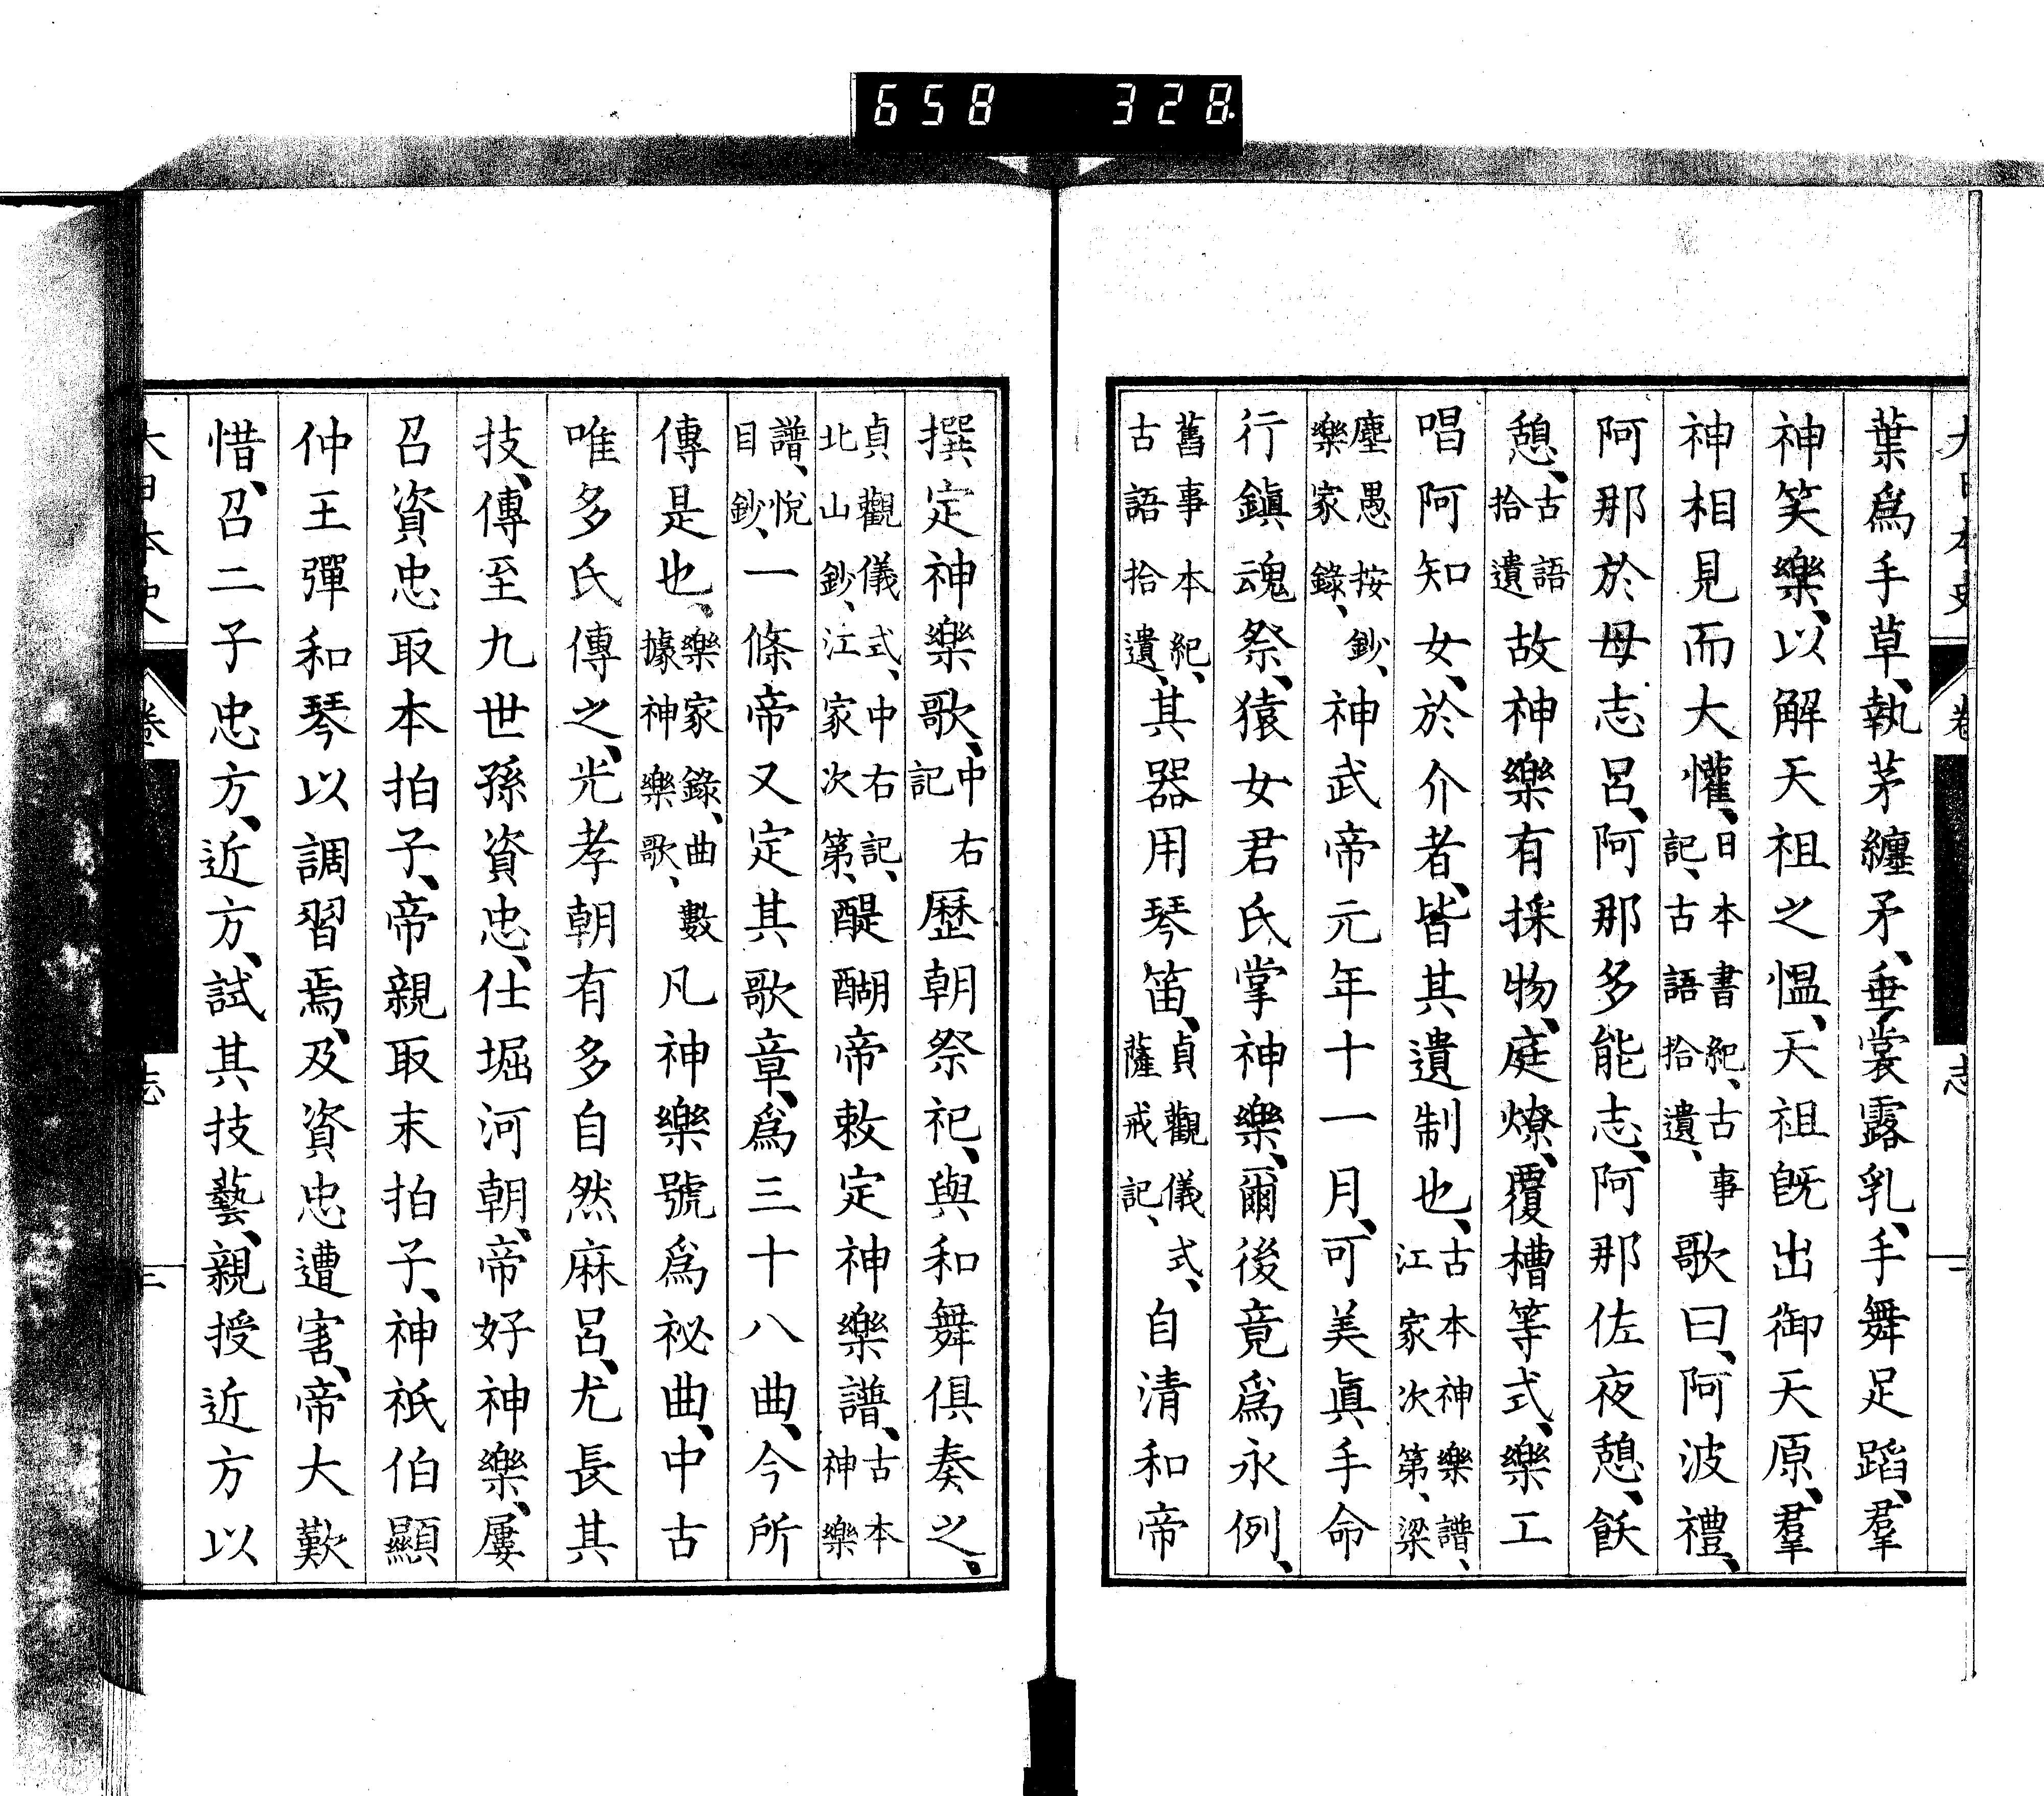 658 328
葉爲手草、執茅纏矛、垂裳露乳、手舞足蹈、羣
神笑樂、以解天祖之慍、天祖旣出御天原、羣
神相見而大懽、日本書紀、古事記、古語拾遺、歌曰、阿波禮、
阿那於母志呂、阿那多能志、阿那佐夜憩、飫
憩、古語拾遺故神樂有採物、庭燎、覆槽等式、樂工
唱阿知女、於介者、皆其遺制也、古本神樂譜、江家次第、梁
塵愚按鈔、樂家錄、神武帝元年十一月、可美眞手命
行鎭魂祭、猿女君氏掌神樂、爾後竟爲永例、
舊事本紀、古語拾遺、其器用琴笛、貞觀儀式、薩戒記、自清和帝
撰定神樂歌、中右記歷朝祭祀、與和舞俱奏之、
貞觀儀式、中右記、北山鈔、江家次第、醍醐帝敕定神樂譜、古本神樂
譜、悅目鈔、一條帝又定其歌章、爲三十八曲、今所
傳是也、樂家錄、曲數據神樂歌、凡神樂號爲祕曲、中古
唯多氏傳之、光孝朝有多自然麻呂、尤長其
技、傳至九世孫資忠、仕堀河朝、帝好神樂、屢
召資忠取本拍子、帝親取末拍子、神祇伯顯
仲王彈和琴以調習焉、及資忠遭害、帝大歎
惜、召二子忠方、近方、試其技藝、親授近方以
大日本史 卷 志 二